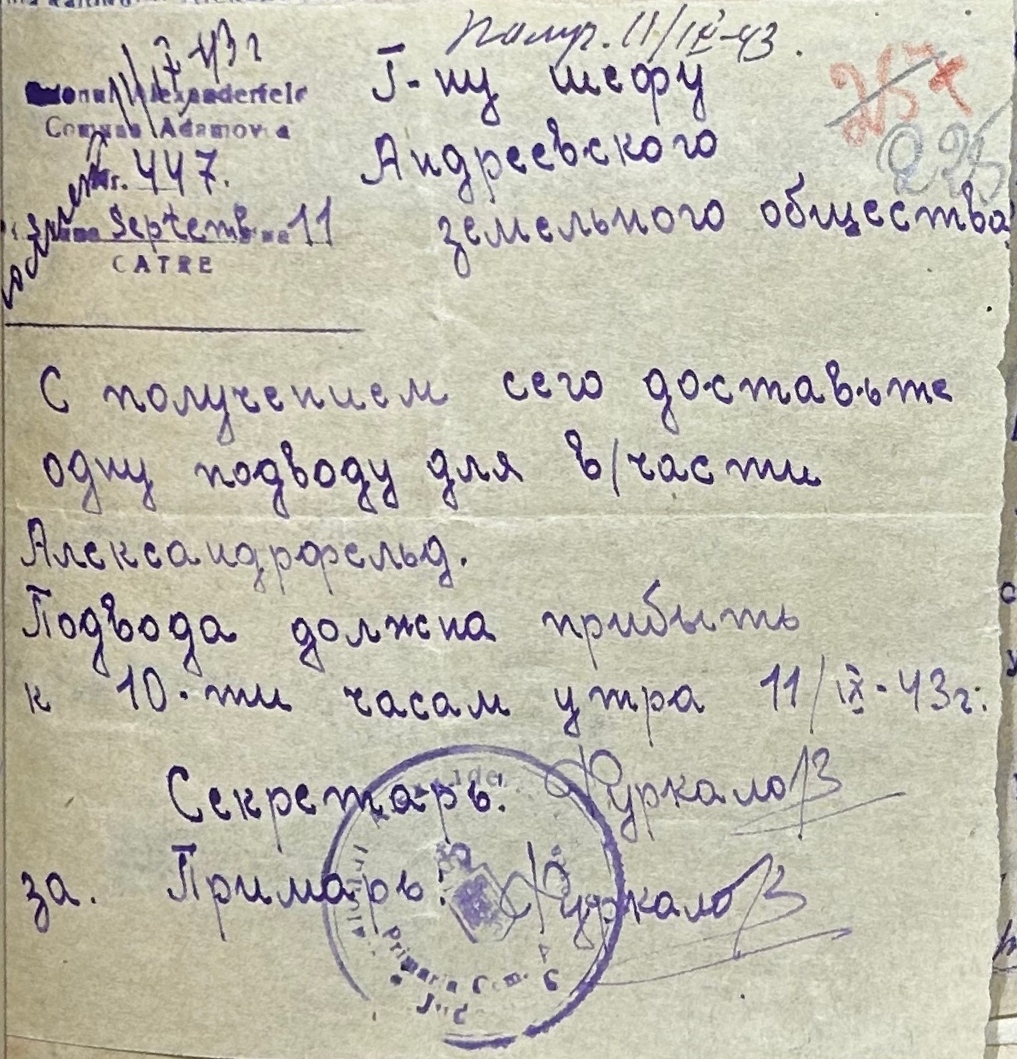 Получ. 11/IX-43.
Raionul Alexanderfeld
Comuna Adamovca
Nr. 447.
Septembrie 11
CATRE
Г-ну шефу
Андреевского
земельного общества
225
С получением сего доставьте
одну подводу для в/части
Александрфельд.
Подвода должна прибыть
к 10-ти часам утра 11/IX-43г.
Секретарь. Журкало
за. Примарь: Журкало
Primaria Com.
Jud